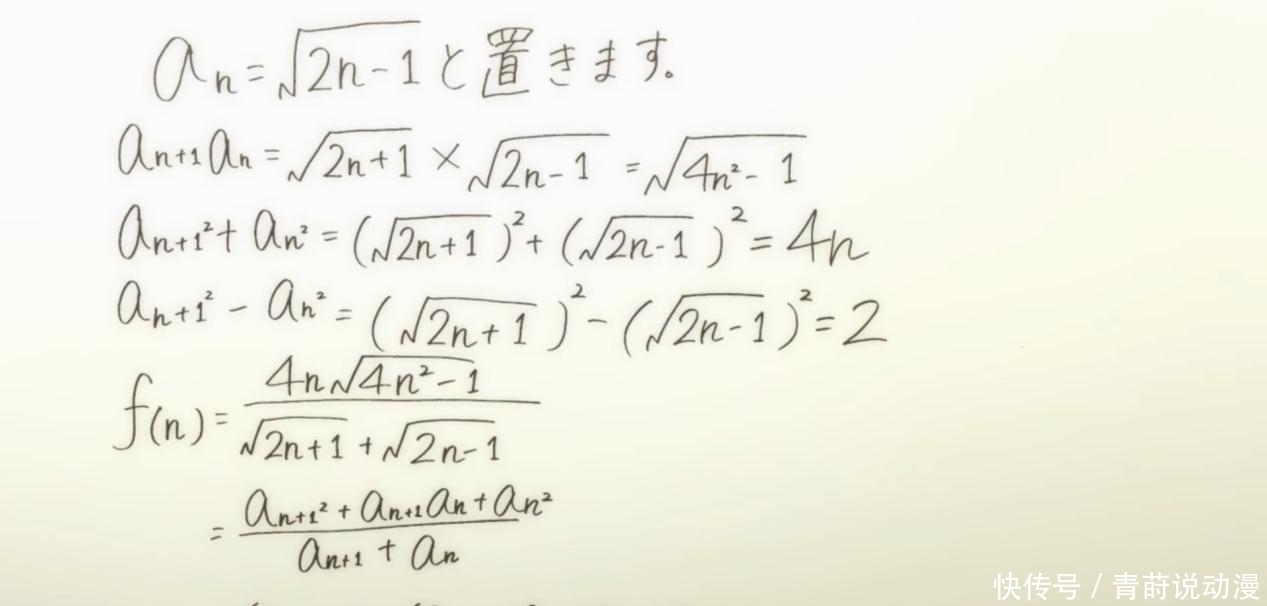 aₙ = √(2n-1) と置きます。
aₙ₊₁aₙ = √(2n+1) × √(2n-1) = √(4n²-1)
aₙ₊₁² + aₙ² = (√(2n+1))² + (√(2n-1))² = 4n
aₙ₊₁² - aₙ² = (√(2n+1))² - (√(2n-1))² = 2
f(n) = (4n√(4n²-1))/(√(2n+1) + √(2n-1))
= (aₙ₊₁² + aₙ₊₁aₙ + aₙ²)/(aₙ₊₁ + aₙ)
快传号 / 青莳说动漫